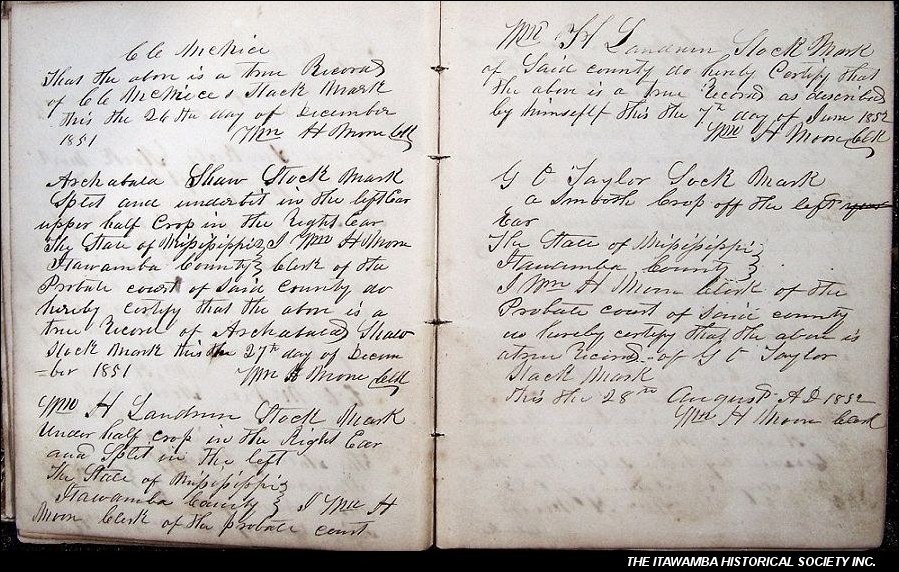 C C McNiece
That the above is a true Record
of C C McNiece s Stack Mark
this the 26 the day of December
1851 Wm H Moore Clk
Archabald Shaw Stock Mark
Split and underbit in the left Ear
upper half Crop in the Right Ear
The State of Mississippi } I Wm H Moore
Itawamba County } Clerk of the
Probate court of said County do
hereby certify that the above is a
true Record of Archabald Shaw
Stock Mark this the 27th day of Decem
=ber 1851 Wm H Moore Clk
Wm H Landrum Stock Mark
Under half crop in the Right Ear
and Split in the left
The State of Mississippi }
Itawamba County } I Wm H
Moore Clerk of the probate court
Wm H Landrum Stock Mark
of Said county do hereby Certify that
the above is a true Record as described
by himself this the 7th day of June 1852
Wm H Moore Clk
G C Taylor Sock Mark
a Smooth Crop off the left
Ear
The State of Mississippi }
Itawamba County }
I Wm H Moore Clerk of the
Probate court of Said county
do hereby certify that the above is
a true Record of G C Taylor
Stack Mark
This the 28th August A.D 1852
Wm H Moore Clerk
THE ITAWAMBA HISTORICAL SOCIETY INC.